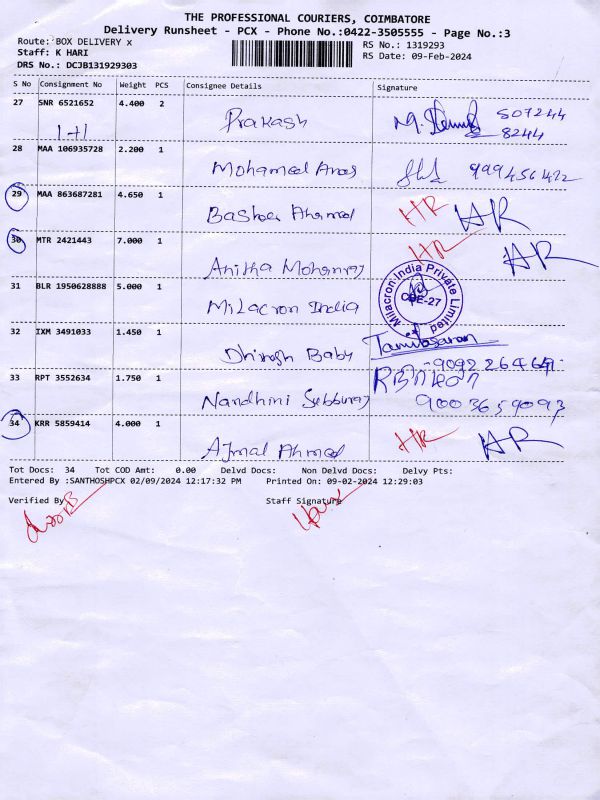 THE PROFESSIONAL COURIERS, COIMBATORE
Delivery Runsheet - PCX - Phone No.:0422-3505555 - Page No.:3
Route: BOX DELIVERY x
RS No.: 1319293
Staff: K HARI
RS Date: 09-Feb-2024
DRS No.: DCJB131929303
S No Consignment No Weight PCS Consignee Details Signature
27 SNR 6521652 4.400 2 Prakash
1+1 8244
28 MAA 106935728 2.200 1 Mohamed Anas
29 MAA 863687281 4.650 1 Basheer Ahamed HR HR
30 MTR 2421443 7.000 1 Anitha Mohanraj HR HR
31 BLR 1950628888 5.000 1 Milacron India
Milacron India Private Limited
COE-27
32 IXM 3491033 1.450 1 Dhinesh Babu
33 RPT 3552634 1.750 1 Nandhini 9003659093
34 KRR 5859414 4.000 1 Ajmal Ahmed HR HR
Tot Docs: 34 Tot COD Amt: 0.00 Delvd Docs: Non Delvd Docs: Delvy Pts:
Entered By :SANTHOSHPCX 02/09/2024 12:17:32 PM Printed On: 09-02-2024 12:29:03
Verified By Staff Signature